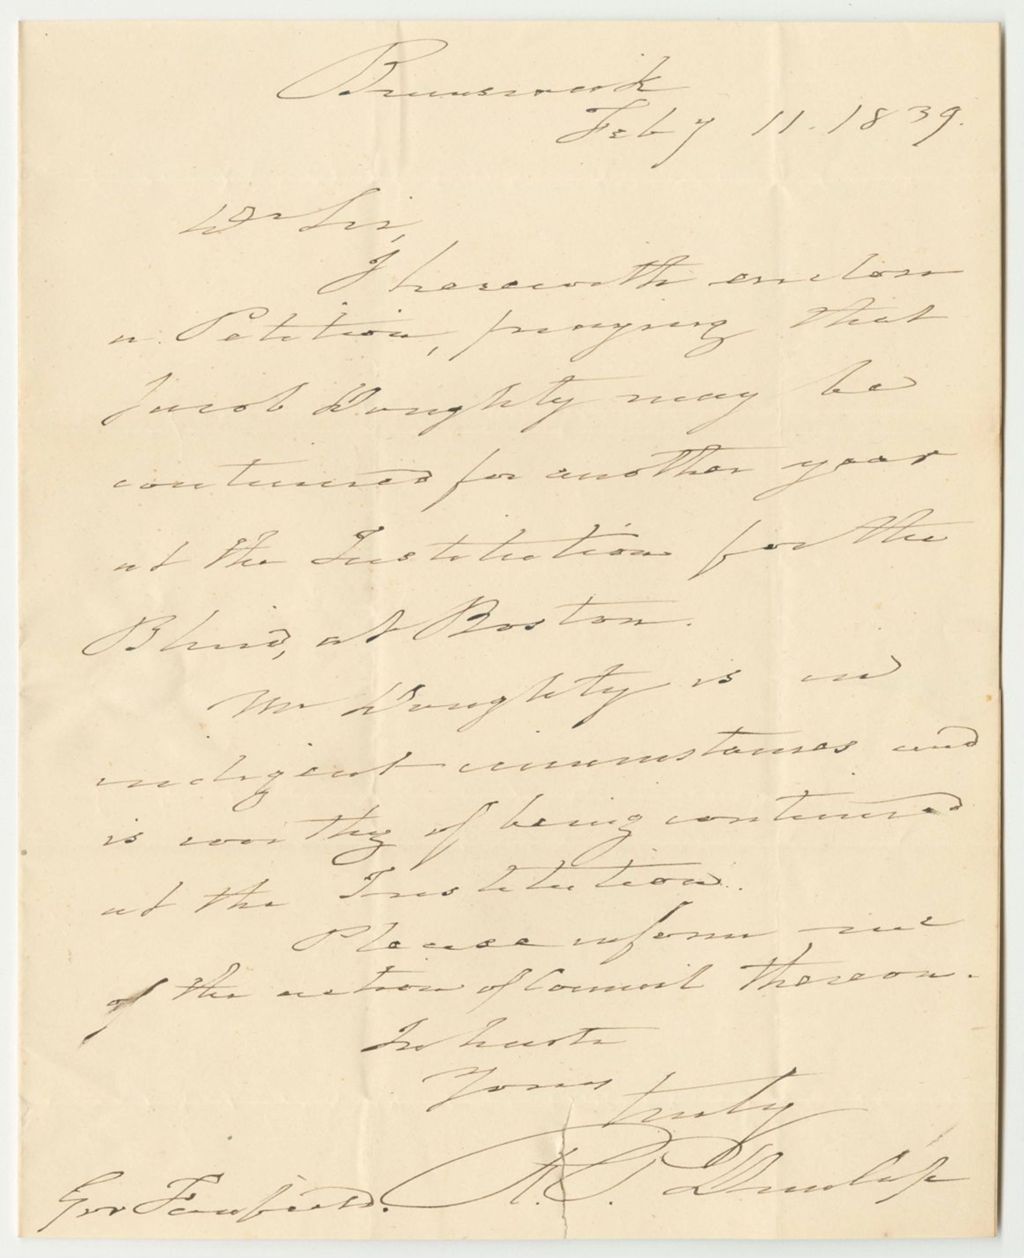 Brunswick
Feby 11. 1839.
Dr Sir,
I herewith enclose
a Petition, praying that
Jacob Doughty may be
continued for another year
at the Institution for the
Blind, at Boston.
Mr Doughty is in
indigent circumstances and
is worthy of being continued
at the Institution.
Please inform me
of the action of Council thereon.
In haste
Yours
truly
R. P. Dunlap
Gov Fairfield.